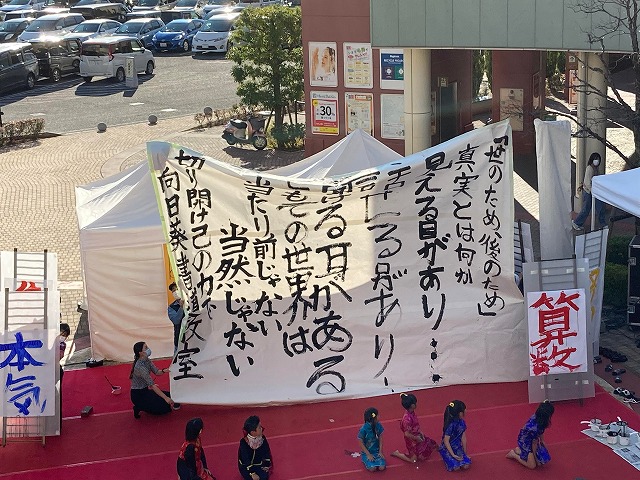 「世のため、後のため」
真実とは何か
見える目があり…
があり、
る耳がある
その世界は
当たり前じゃない
当然じゃない
切り開け己の力で
向日葵書道教室
算数
本気
30%